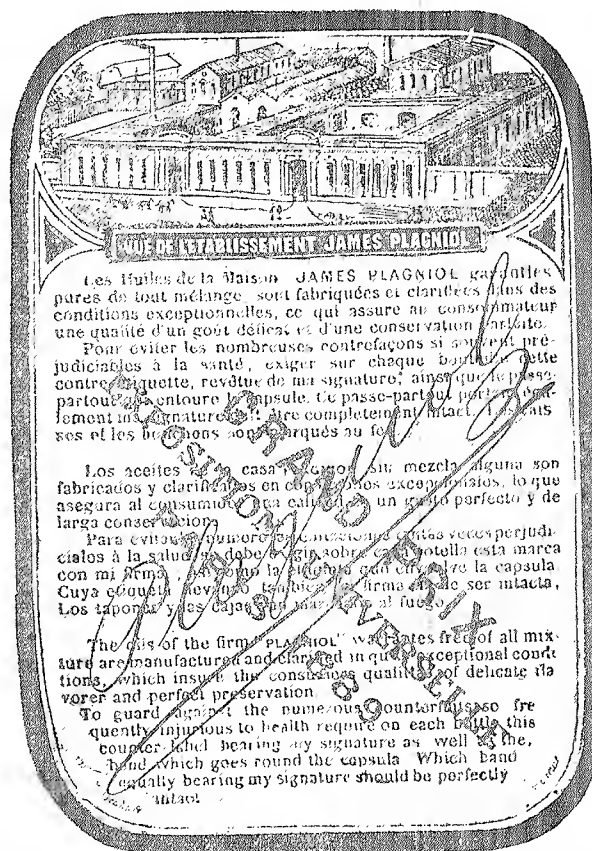 VUE DE L'ETABLISSEMENT JAMES PLAGNIOL
Les Huiles de la Maison JAMES PLAGNIOL garanties
pures de tout mélange, sont fabriquées et clarifiées dans des
conditions exceptionnelles, ce qui assure au consommateur
une qualité d'un goût délicat et d'une conservation parfaite.
Pour éviter les nombreuses contrefaçons si souvent pré-
judiciables à la santé, exiger sur chaque bouteille cette
contre-étiquette, revêtue de ma signature, ainsi que le passe-
partout qui entoure la capsule. Ce passe-partout portant éga-
lement ma signature doit être complètement intact. Les cais-
ses et les bouchons sont marqués au feu
Los aceites casa sin mezcla alguna son
fabricados y clarificados en excepcionales, lo que
asegura al consumidor un gusto perfecto y de
larga conservacion
Para evitar veces perjudi-
ciales à la salud se debe sobre cada botella esta marca
con mi firma, la capsula.
Cuya firma debe ser intacta,
Los tapones y las cajas al fuego
The oils of the firm "PLAGNIOL" warrantes free of all mix-
ture are manufactured and clarified in quite exceptional condi
tions, which insure the qualities of delicate fla
vorer and perfect preservation
To guard against the numerous counterfaits so fre
quently injurious to health require on each bottle this
counter-label bearing my signature as well as the,
band which goes round the capsula Which band
equally bearing my signature should be perfectly
intact
GRAND PRIX
EXPOSITION UNIVERSELLE